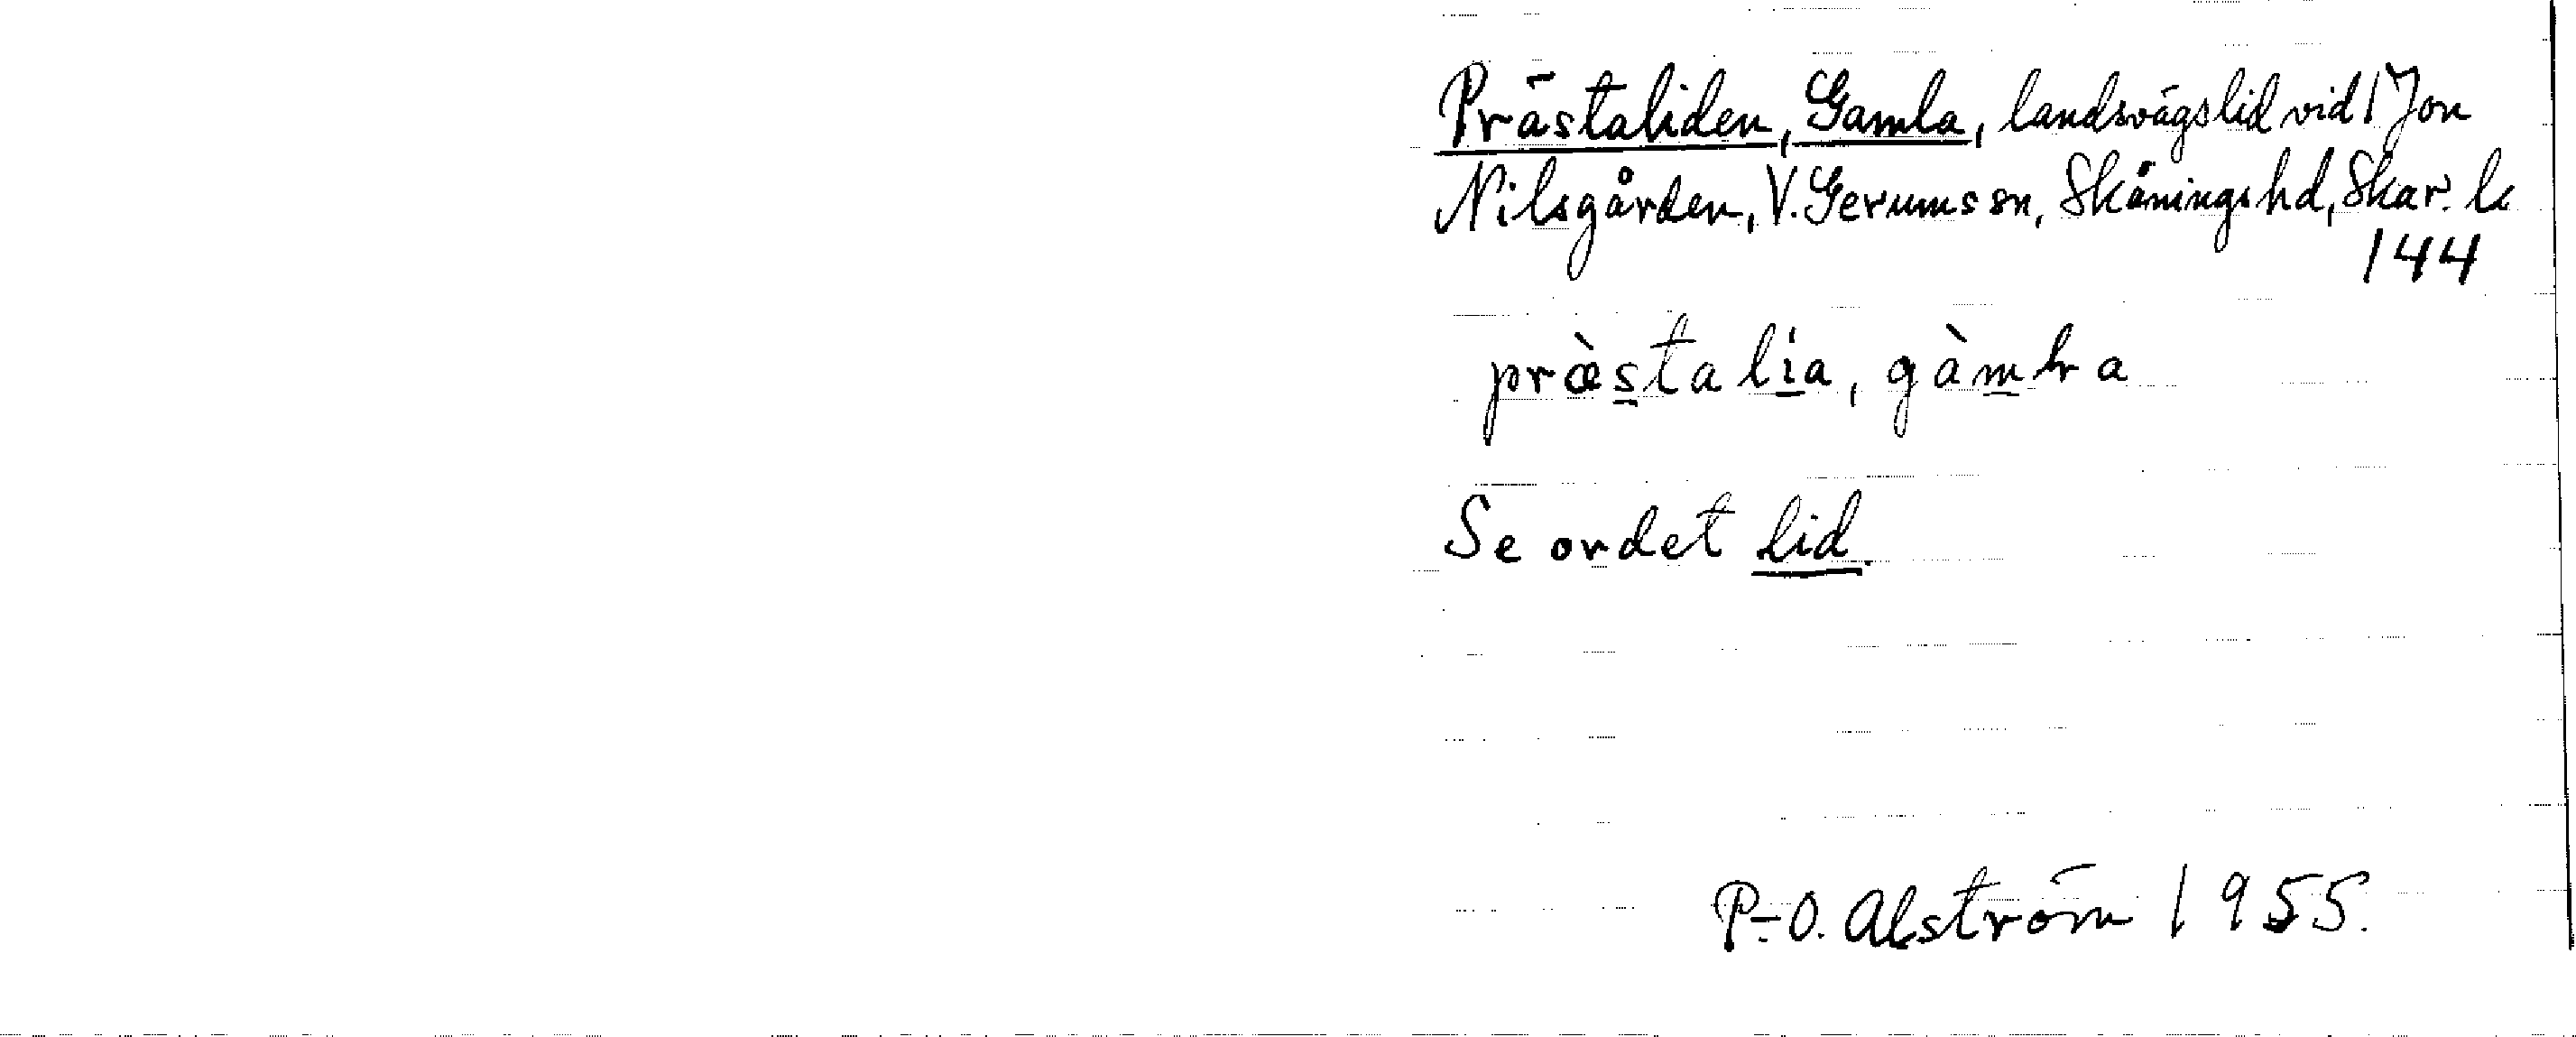 Prästaliden, Gamla, landsvägslid vid 1 Jon
Nilsgården, V. Gerums sn, Skånings hd, Skar. l.
144
præ̀stalia, gàmla
Se ordet lid.
P-O. Alström 1955.